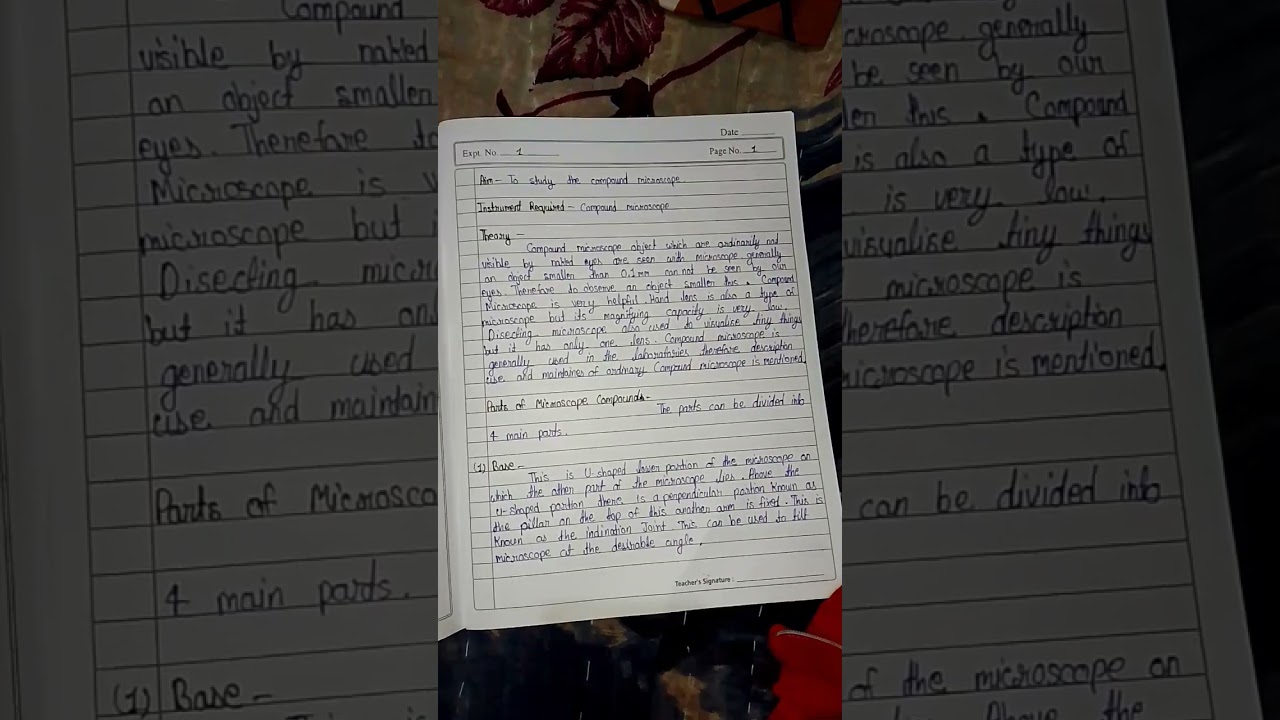 Date
Expt. No. 1
Page No. 1
Aim - To study the compound microscope.
Instrument Required - Compound microscope
Theory -
Compound microscope object which are ordinarily not
visible by naked eyes are seen with microscope generally
an object smaller than 0.1mm can not be seen by our
eyes. Therefore to observe an object smaller this. Compound
Microscope is very helpful. Hand lens is also a type of
microscope but its magnifying capacity is very low.
Disecting microscope also used to visualise tiny things
but it has only one lens. Compound microscope is
generally used in the laboratories therefore description
use and maintaines of ordinary Compound microscope is mentioned.
Parts of Microscope Compounds-
The parts can be divided into
4 main parts.
(1) Base -
This is U-shaped lower portion of the microscope on
which the other part of the microscope lies. Above the
U-shaped portion there is a perpendicular portion known as
the pillar on the top of this another arm is fixed. This is
known as the indination Joint. This can be used to tilt
microscope at the desirable angle.
Teacher's Signature :